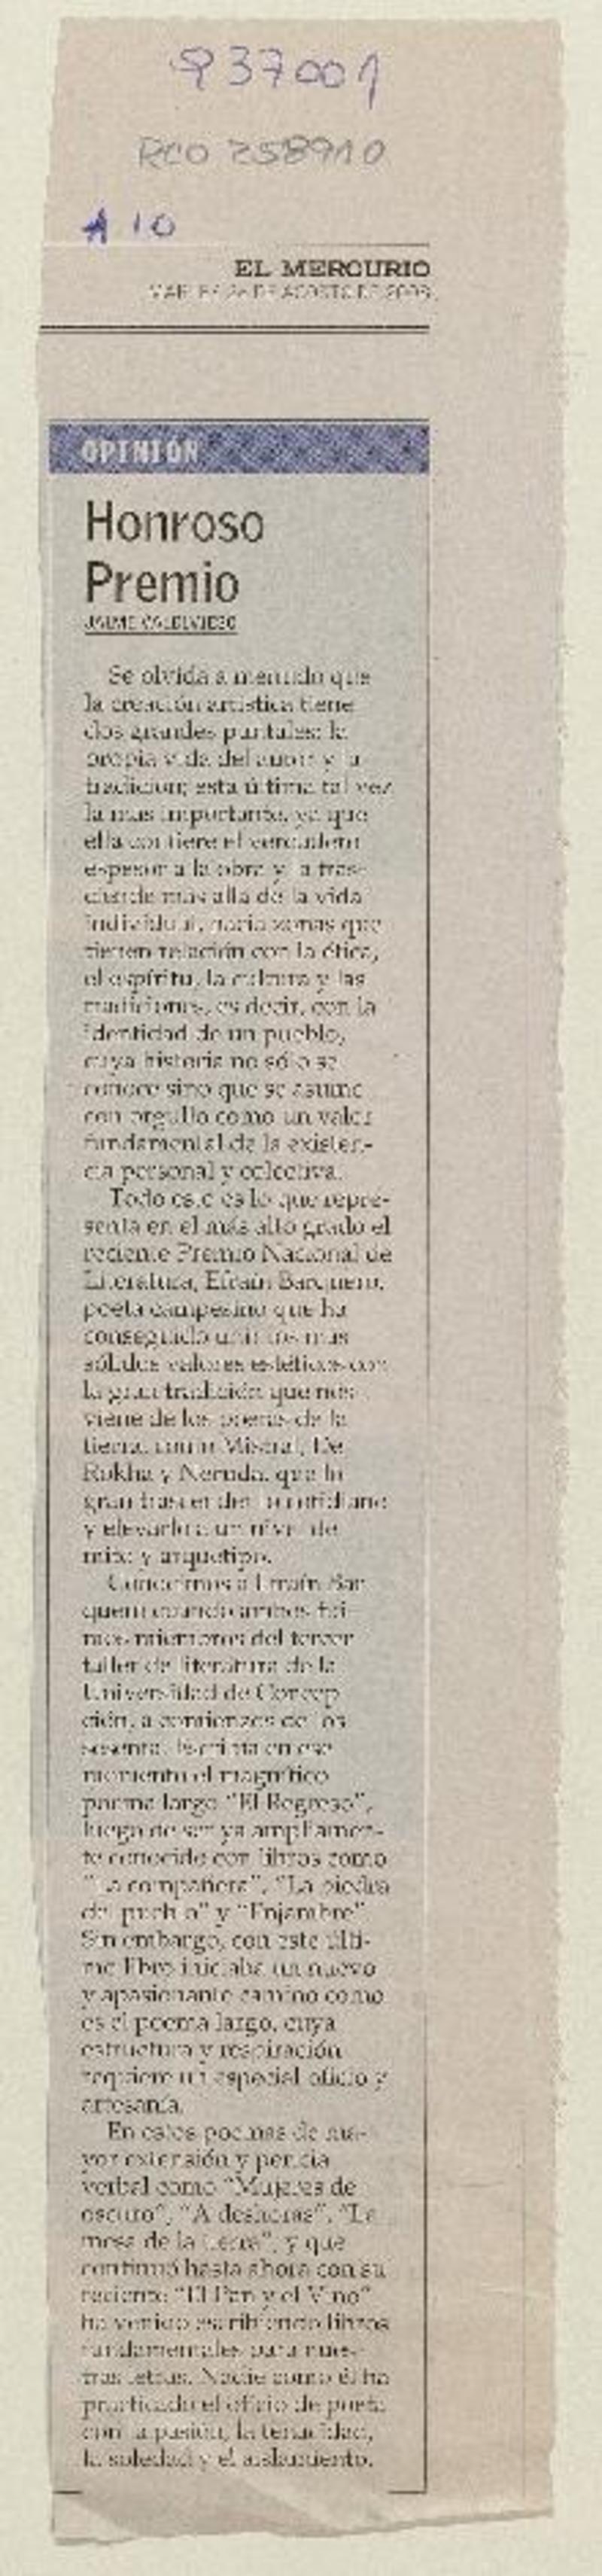 937001
RCO 258910
A 10
EL MERCURIO
MARTES 26 DE AGOSTO DE 2008
OPINIÓN
Honroso
Premio
JAIME VALDIVIESO
Se olvida a menudo que
la creación artística tiene
dos grandes puntales: la
propia vida del autor y la
tradición; esta última tal vez
la más importante, ya que
ella confiere el verdadero
espesor a la obra y la tras-
ciende más allá de la vida
individual, hacia zonas que
tienen relación con la ética,
el espíritu, la cultura y las
tradiciones, es decir, con la
identidad de un pueblo,
cuya historia no sólo se
conoce sino que se asume
con orgullo como un valor
fundamental de la existen-
cia personal y colectiva.
Todo esto es lo que repre-
senta en el más alto grado el
reciente Premio Nacional de
Literatura, Efraín Barquero,
poeta campesino que ha
conseguido unir los más
sólidos valores estéticos con
la gran tradición que nos
viene de los poetas de la
tierra, como Mistral, De
Rokha y Neruda, que lo
gran trascender lo cotidiano
y elevarlo a un nivel de
mito y arquetipo.
Conocimos a Efraín Bar
quero cuando ambos fui-
mos miembros del tercer
taller de literatura de la
Universidad de Concep
ción, a comienzos de los
sesenta. Escribía en ese
momento el magnífico
poema largo "El Regreso",
luego de ser ya ampliamen-
te conocido con libros como
"La compañera", "La piedra
del pueblo" y "Enjambre".
Sin embargo, con este últi-
mo libro iniciaba un nuevo
y apasionante camino como
es el poema largo, cuya
estructura y respiración
requiere un especial oficio y
artesanía.
En estos poemas de ma-
yor extensión y pericia
verbal como "Mujeres de
oscuro", "A deshoras", "La
mesa de la tierra", y que
continuó hasta ahora con su
reciente "El Pan y el Vino"
ha venido escribiendo libros
fundamentales para nues-
tras letras. Nadie como él ha
practicado el oficio de poeta
con la pasión, la tenacidad,
la soledad y el aislamiento.